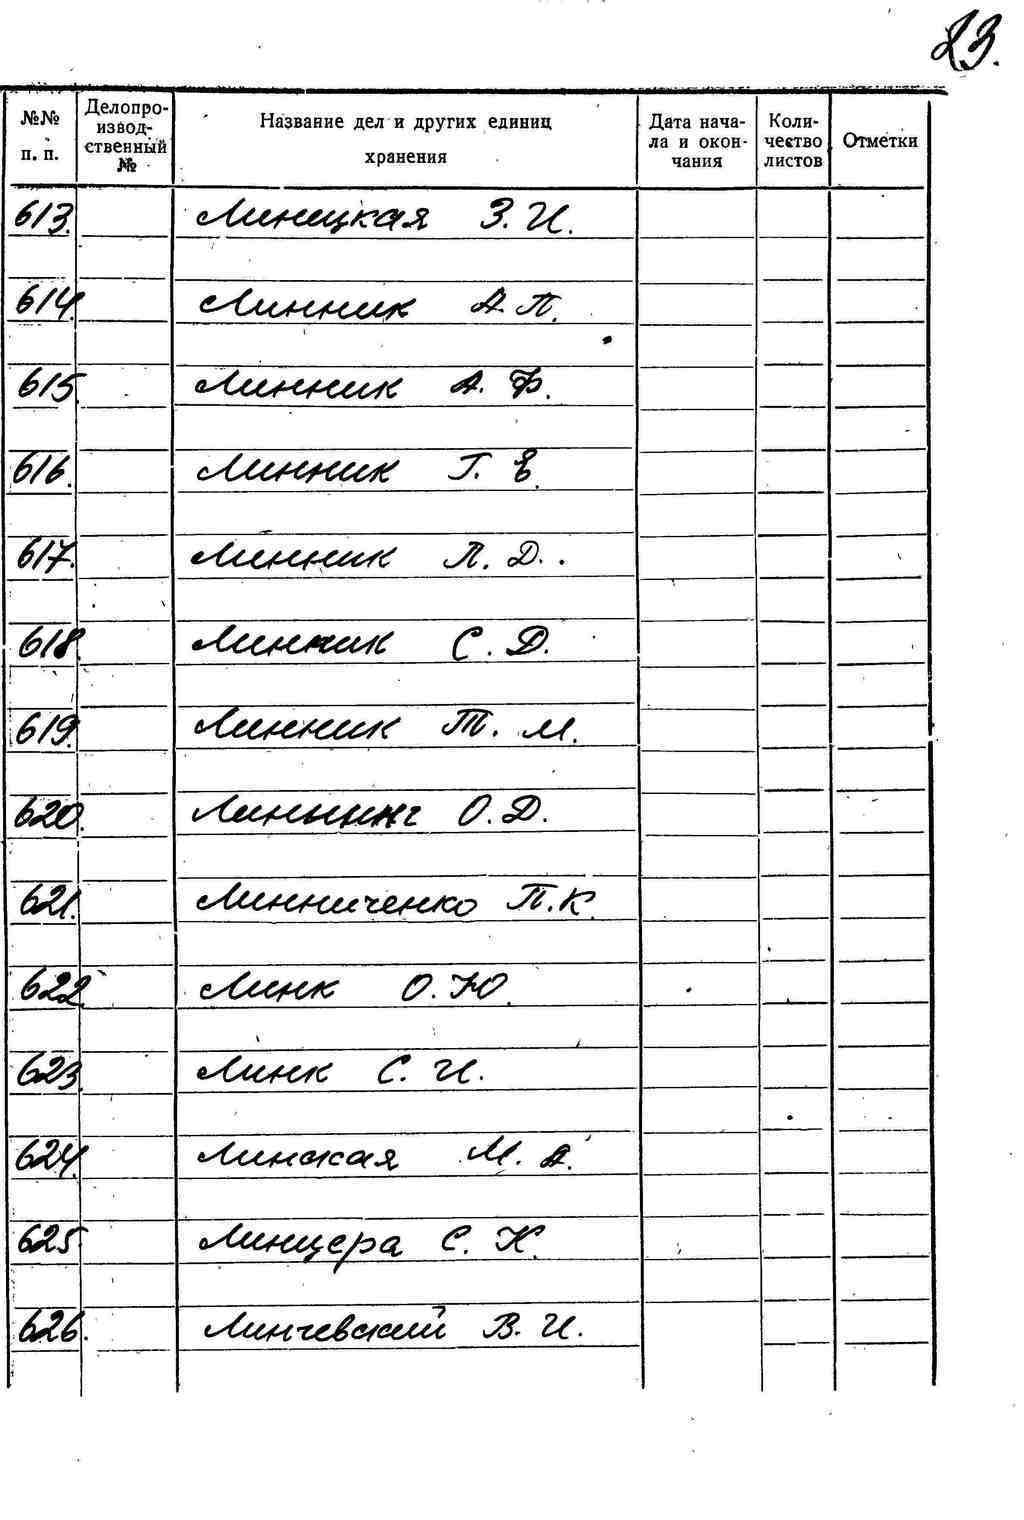 23.
№№ п. п. Делопроизводственный № Название дел и других единиц хранения Дата начала и окончания Количество листов Отметки
613. Линицкая З. И.
614. Линник А. П.
615. Линник А. Ф.
616. Линник Г. Е.
617. Линник Л. Д.
618. Линник С. Д.
619. Линник Т. М.
620. Линнинг О. Д.
621. Линниченко П. К.
622. Линк О. Ю.
623. Линк С. И.
624. Линская М. А.
625. Линцера С. К.
626. Линчевский В. И.